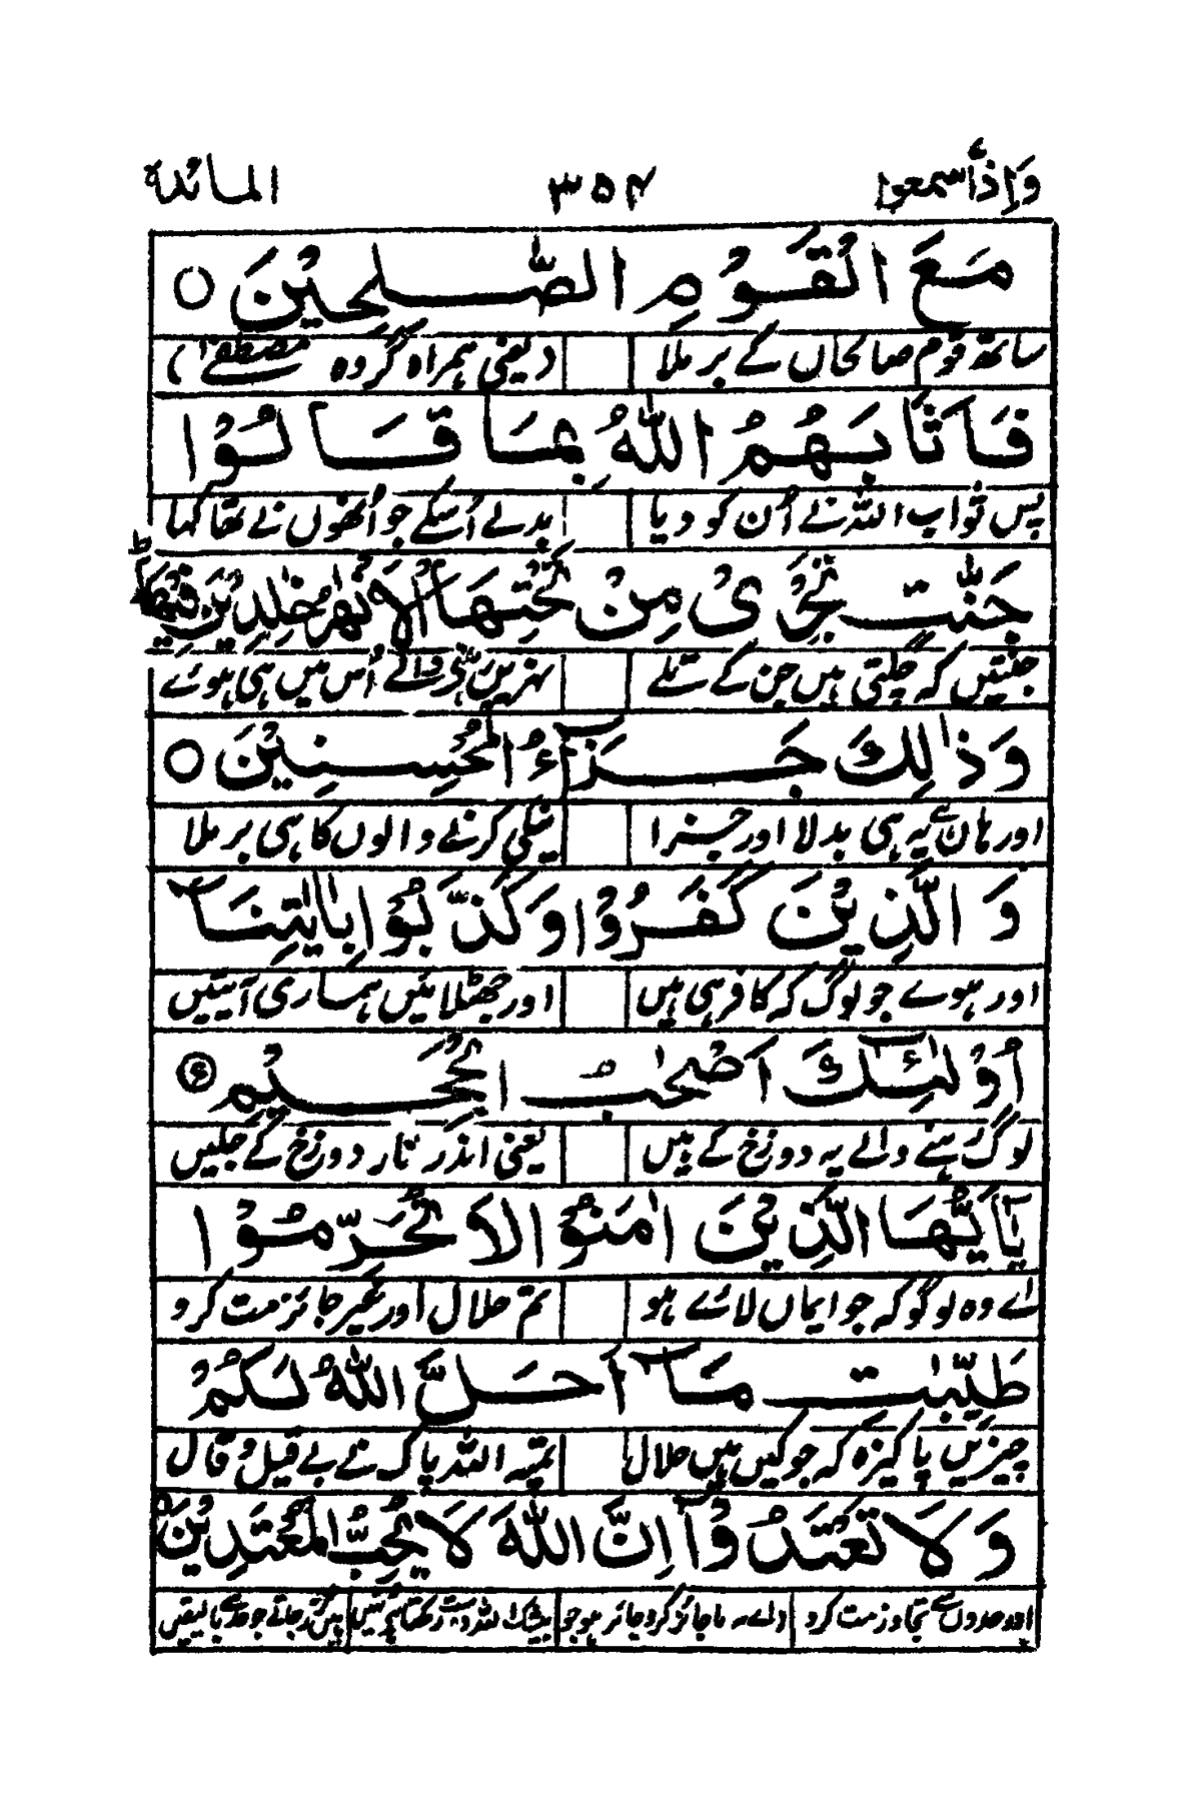 وَاِذَا سمعوا ۳۵۴ المائدہ
مَعَ الْقَوْمِ الصّٰلِحِيْنَ ○
ساتھ قوم صالحاں کے بر ملا (یعنی ہمراہ گروہ مصطفےٰ)
فَاَثَابَهُمُ اللّٰهُ بِمَا قَالُوْا
پس ثواب اللہ نے اُن کو دیا بدلے اُسکے جو اُنھوں نے تھا کہا
جَنّٰتٍ تَجْرِیْ مِنْ تَحْتِهَا الْاَنْهٰرُ خٰلِدِيْنَ فِيْهَا ؕ
جنتیں کہ چلتی ہیں جن کے تلے نہریں اُس میں ہی ہوئے
وَذٰلِكَ جَزَآءُ الْمُحْسِنِيْنَ ○
اور ہاں ہے یہ ہی بدلا اور جزا نیکی کرنے والوں کا ہی بر ملا
وَ الَّذِيْنَ كَفَرُوْا وَكَذَّبُوْا بِاٰيٰتِنَآ
اور ہوے جو لوگ کہ کافر ہی ہیں اور جھٹلائیں ہماری آیتیں
اُولٰٓئِكَ اَصْحٰبُ الْجَحِيْمِ
لوگ ہنے والے یہ دوزخ کے ہیں یعنی اندر نار دوزخ کے جلیں
يٰٓاَيُّهَا الَّذِيْنَ اٰمَنُوْا لَا تُحَرِّمُوْا
اے وہ لوگو کہ جو ایماں لائے ہو تم حلال اور غیر جائز مت کرو
طَيِّبٰتِ مَآ اَحَلَّ اللّٰهُ لَكُمْ
چیزیں پاکیزہ کہ جو کیں ہیں حلال تمپہ اللہ پاک نے بے قیل و قال
وَلَا تَعْتَدُوْا ؕ اِنَّ اللّٰهَ لَا يُحِبُّ الْمُعْتَدِيْنَ
اور حدوں سے تجاوز مت کرو ناجائز کرو جائز ہو جو بیشک اللہ دوست رکھتا ہے نہیں جو حد سے بالیقیں